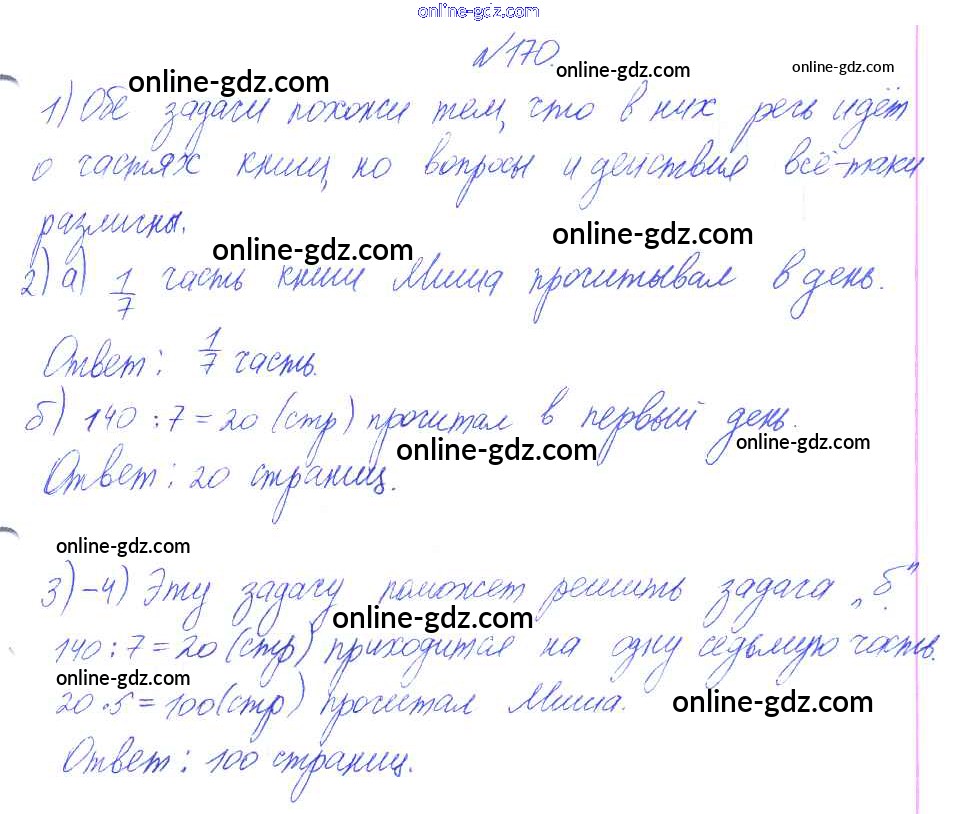 online-gdz.com
№170.
online-gdz.com online-gdz.com online-gdz.com
1) Обе задачи похожи тем, что в них речь идёт
о частях книги, но вопросы и действия всё-таки
различны.
online-gdz.com online-gdz.com
2) а) 1/7 часть книги Миша прочитывал в день.
Ответ: 1/7 часть.
б) 140 : 7 = 20 (стр) прочитал в первый день.
online-gdz.com online-gdz.com
Ответ: 20 страниц.
online-gdz.com
3)-4) Эту задачу поможет решить задача „б".
online-gdz.com
140 : 7 = 20 (стр) приходится на одну седьмую часть.
online-gdz.com online-gdz.com
20 · 5 = 100 (стр) прочитал Миша.
Ответ: 100 страниц.